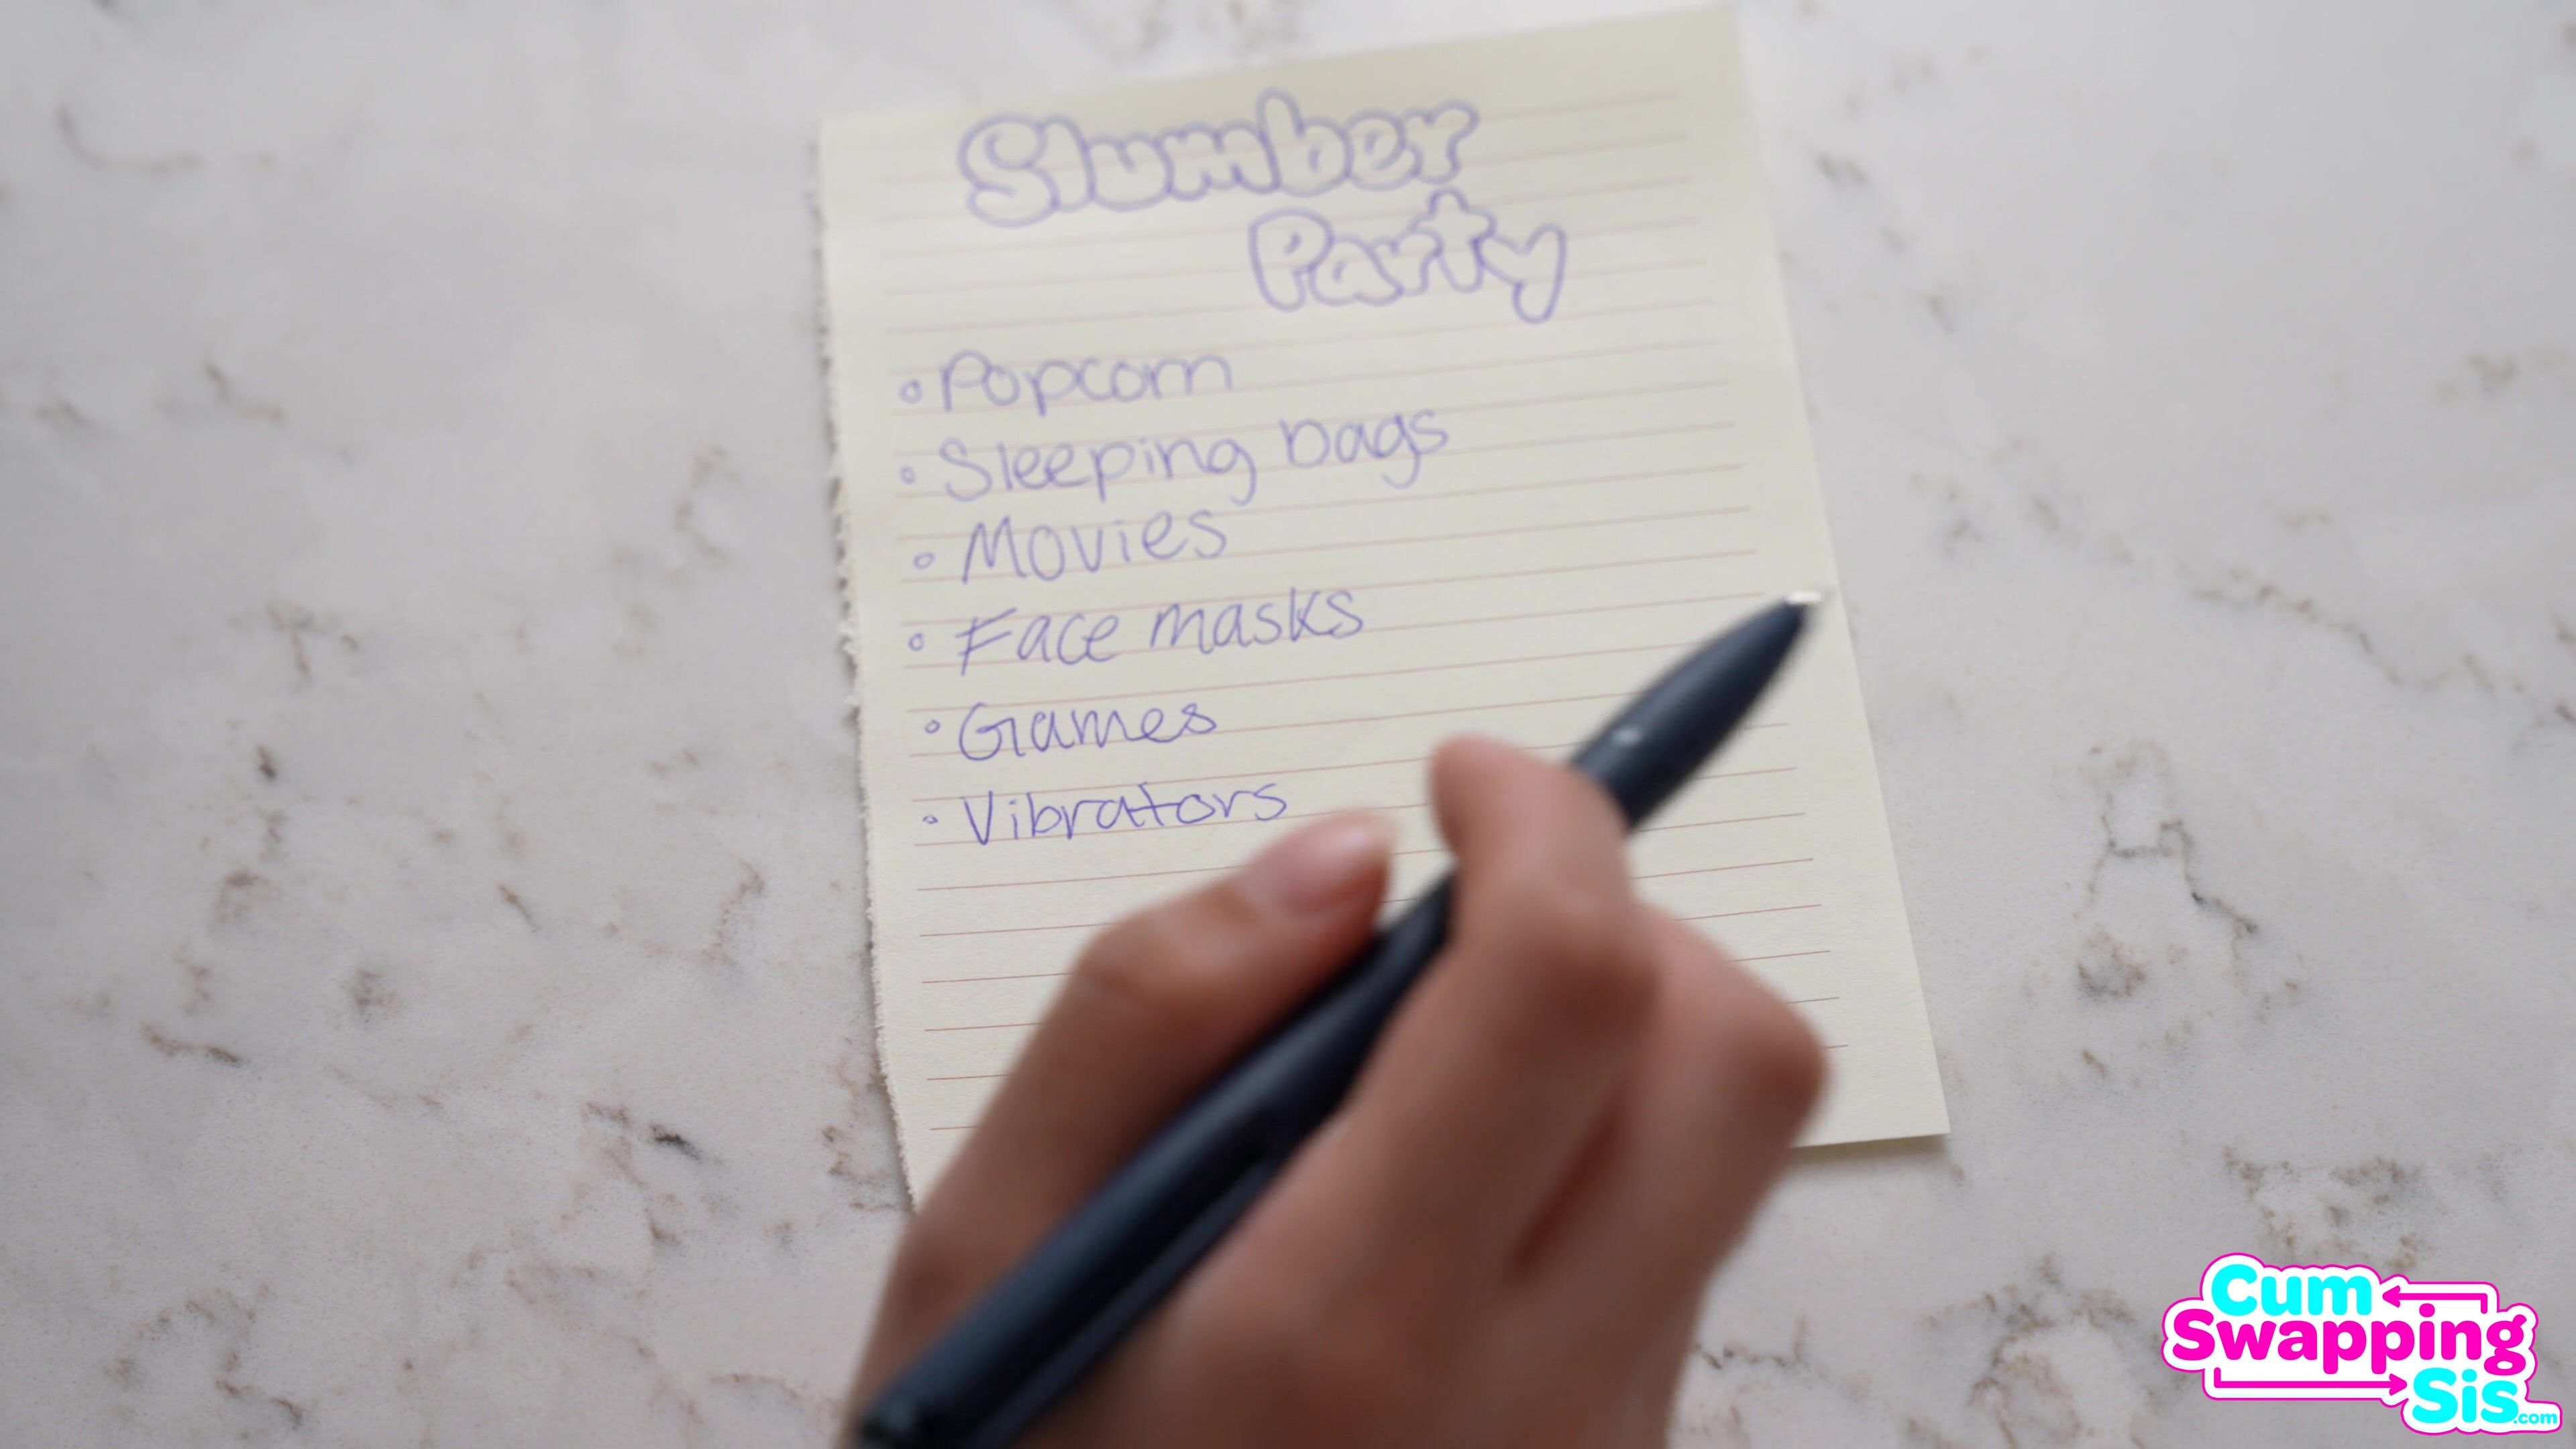 Slumber
Party
Popcorn
Sleeping bags
Movies
Face masks
Games
Vibrators
Cum
Swapping
Sis.com